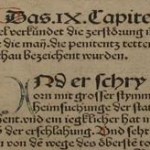 Das.IX.Capite
el verkündet die zerstörung
die die man die penitentz tetten
hau bezeichent wurden.
ND er schry
orn mit grosser stymm
heimsuchunge der stat
ent. vnd ein ieglicher hat
der erschlahung. Vnd sech
en von dē wege des öberstē